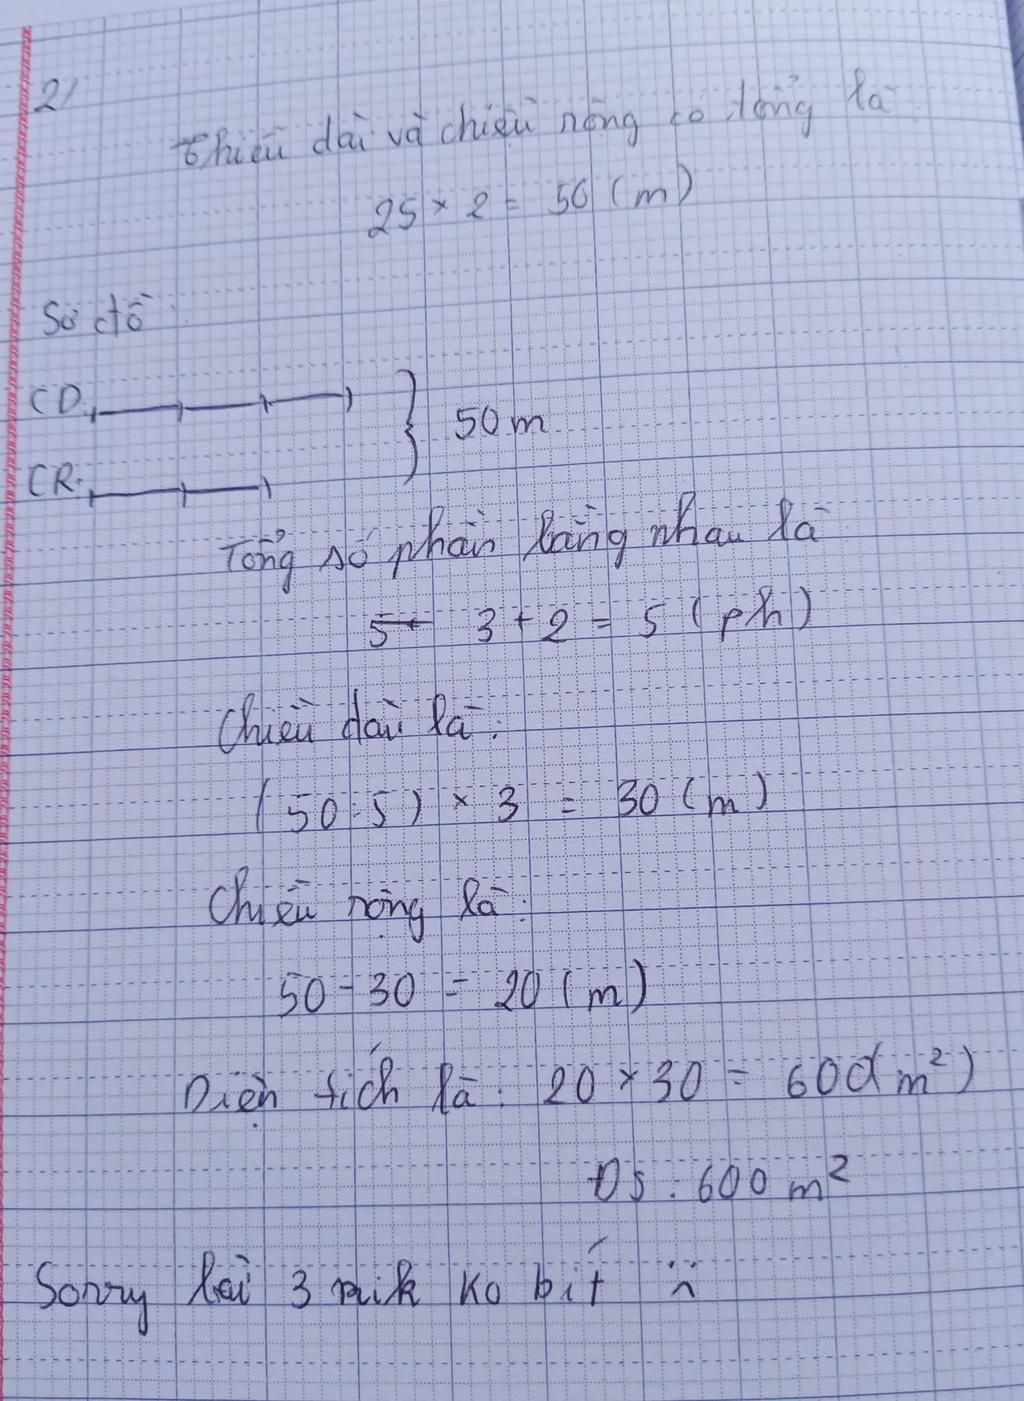 2/
Chiều dài và chiều rộng có tổng là
25 × 2 = 50 (m)
Sơ đồ:
CD:
50 m
CR:
Tổng số phần bằng nhau là
3 + 2 = 5 (ph)
Chiều dài là:
(50:5) × 3 = 30 (m)
Chiều rộng là:
50 - 30 = 20 (m)
Diện tích là: 20 × 30 = 600 (m²)
Đs: 600 m²
Sorry bài 3 mik ko bít